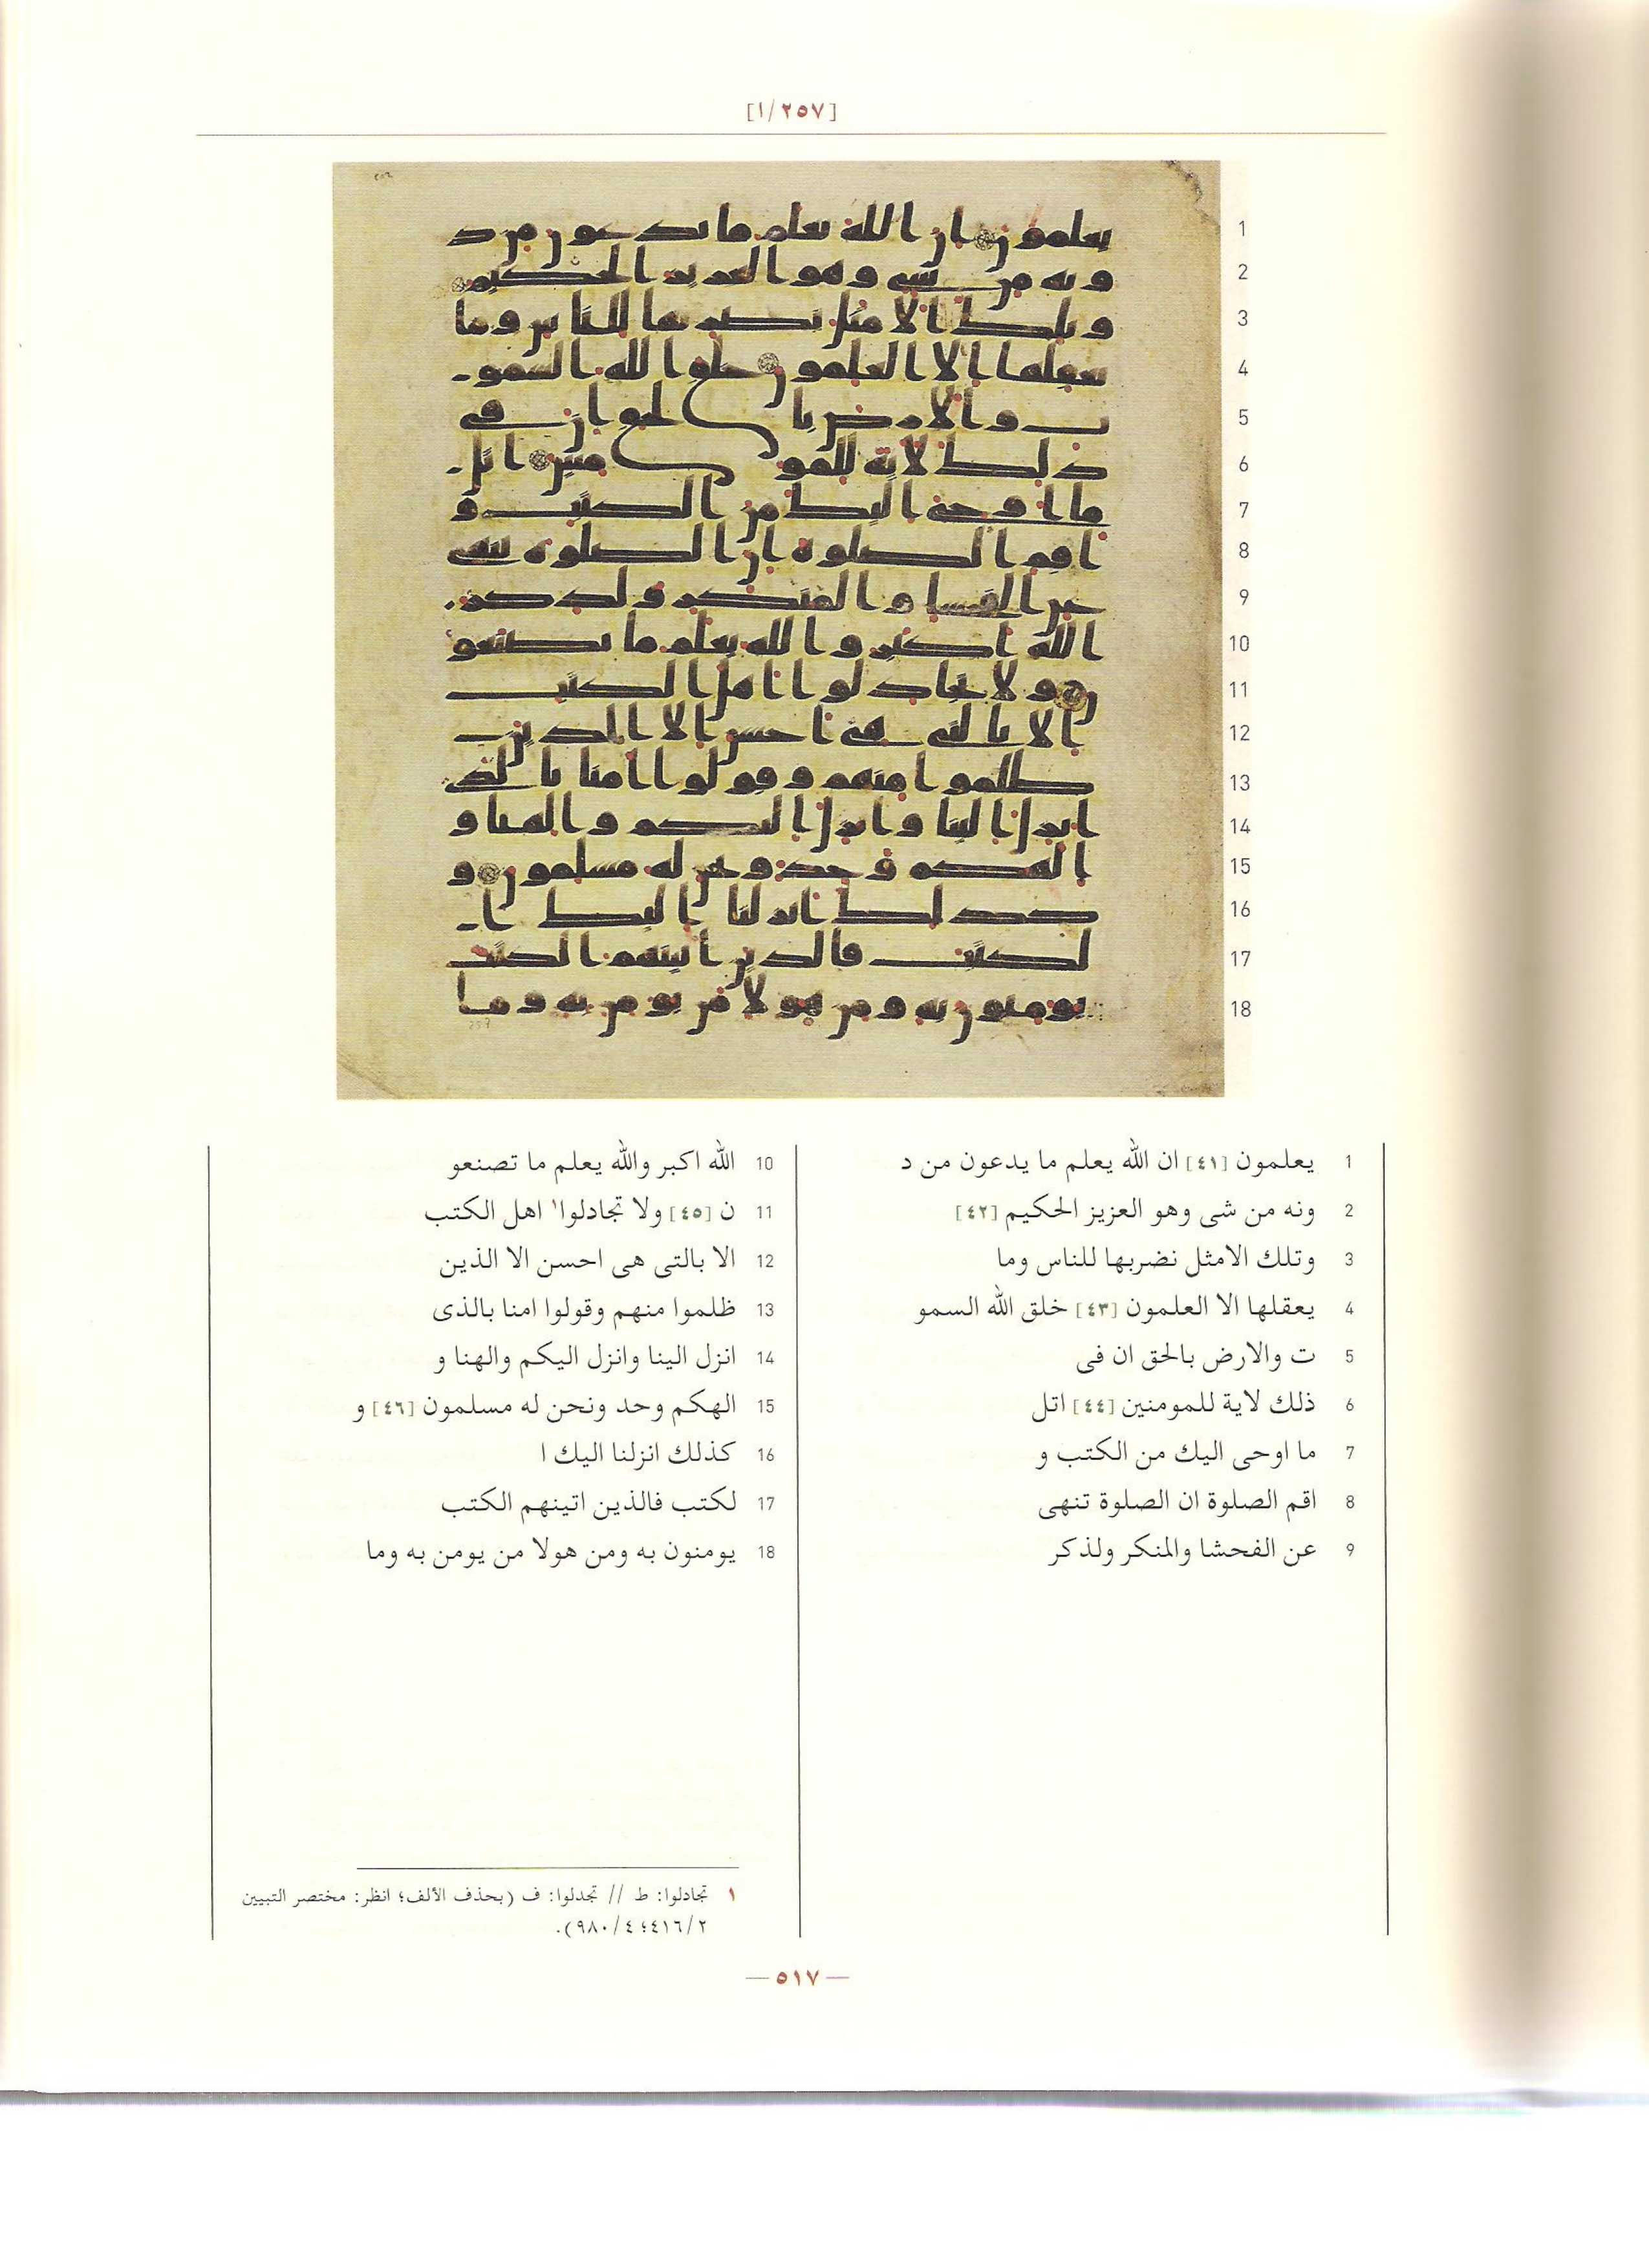 [١/٢٥٧]
1 يعلمون [٤١] ان الله يعلم ما يدعون من د
2 ونه من شى وهو العزيز الحكيم [٤٢]
3 وتلك الامثل نضربها للناس وما
4 يعقلها الا العلمون [٤٣] خلق الله السمو
5 ت والارض بالحق ان فى
6 ذلك لاية للمومنين [٤٤] اتل
7 ما اوحى اليك من الكتب و
8 اقم الصلوة ان الصلوة تنهى
9 عن الفحشا والمنكر ولذكر
10 الله اكبر والله يعلم ما تصنعو
11 ن [٤٥] ولا تجادلوا١ اهل الكتب
12 الا بالتى هى احسن الا الذين
13 ظلموا منهم وقولوا امنا بالذى
14 انزل الينا وانزل اليكم والهنا و
15 الهكم وحد ونحن له مسلمون [٤٦] و
16 كذلك انزلنا اليك ا
17 لكتب فالذين اتينهم الكتب
18 يومنون به ومن هولا من يومن به وما
١ تجادلوا: ط // تجدلوا: ف (بحذف الألف؛ انظر: مختصر التبيين
٤١٦/٢؛ ٩٨٠/٤).
— ٥١٧ —